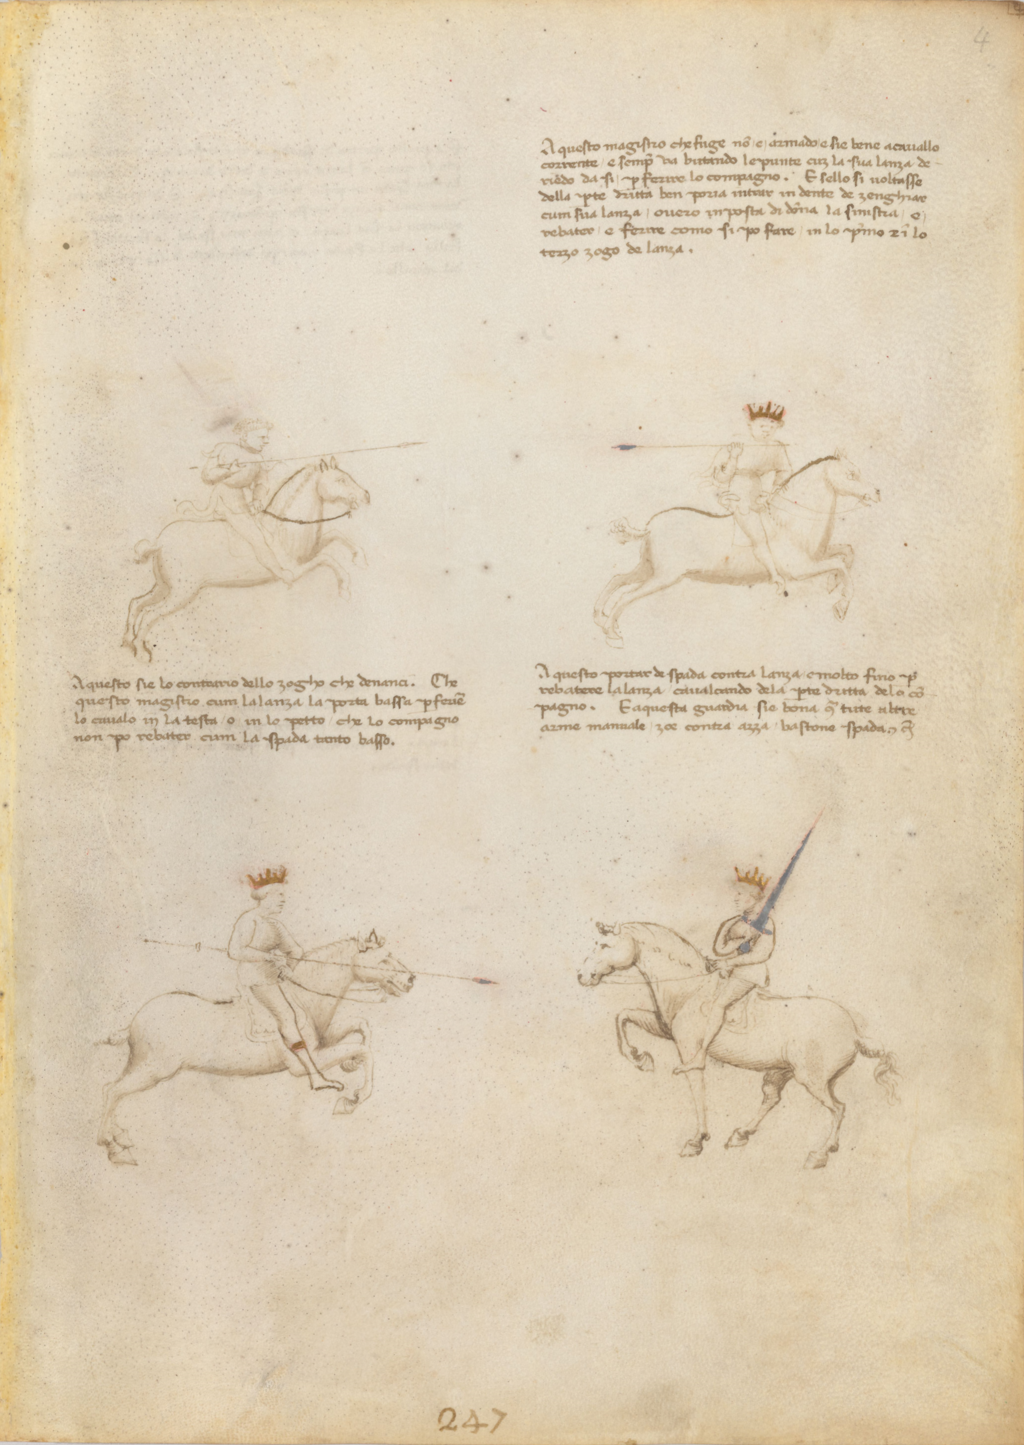 4
Aquesto magistro che fuge nō e armado e sie bene a cavallo
corrente e semp̄ va butando le punte cuz la sua lanza de
riēdo da si p ferire lo compagno. E sello si voltasse
della pte dritta ben poria intrar in dente de zenghiar
cum sua lanza overo in posta di dōna la sinistra e
rebater e ferire como si po fare in lo pͥmo e ī lo
terzo zogo de lanza.
Aquesto sie lo contrario dello zogho che denanci. Che
questo magistro cum la lanza la porta bassa p ferire
lo cavalo in la testa o in lo petto che lo compagno
non po rebater cum la spada tanto basso.
Aquesto portar de spada contra lanza e molto fino p
rebatere la lanza cavalcando de la pte dritta de lo cō
pagno. E aquesta guardia sie bona tute altre
arme manuale zoe contra azza bastone spada
247